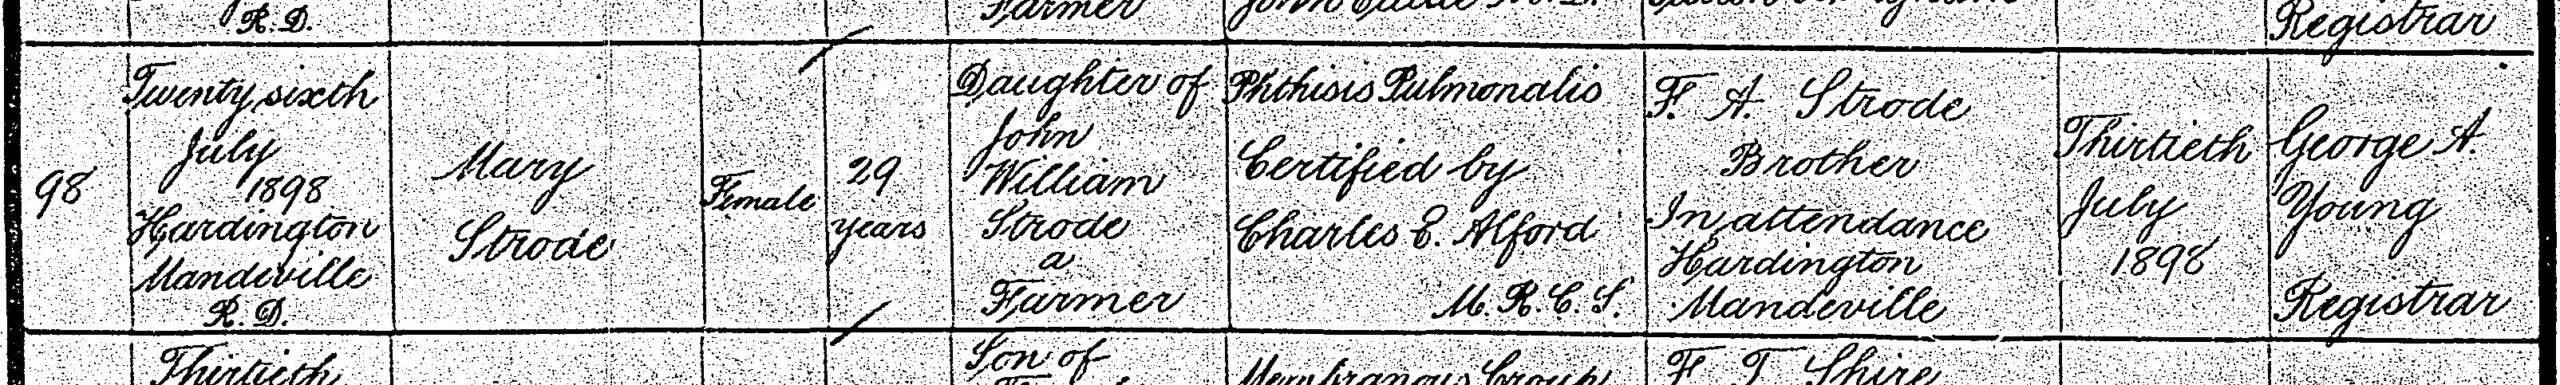 R.D.
Farmer
Registrar
98
Twenty sixth
July
1898
Hardington
Mandeville
R.D.
Mary
Strode
Female
29
years
Daughter of
John
William
Strode
a
Farmer
Phthisis Pulmonalis
Certified by
Charles E. Alford
M.R.C.S.
F. A. Strode
Brother
In attendance
Hardington
Mandeville
Thirtieth
July
1898
George A.
Young
Registrar
Thirtieth
Son of
Membranous Croup
F. T. Shire